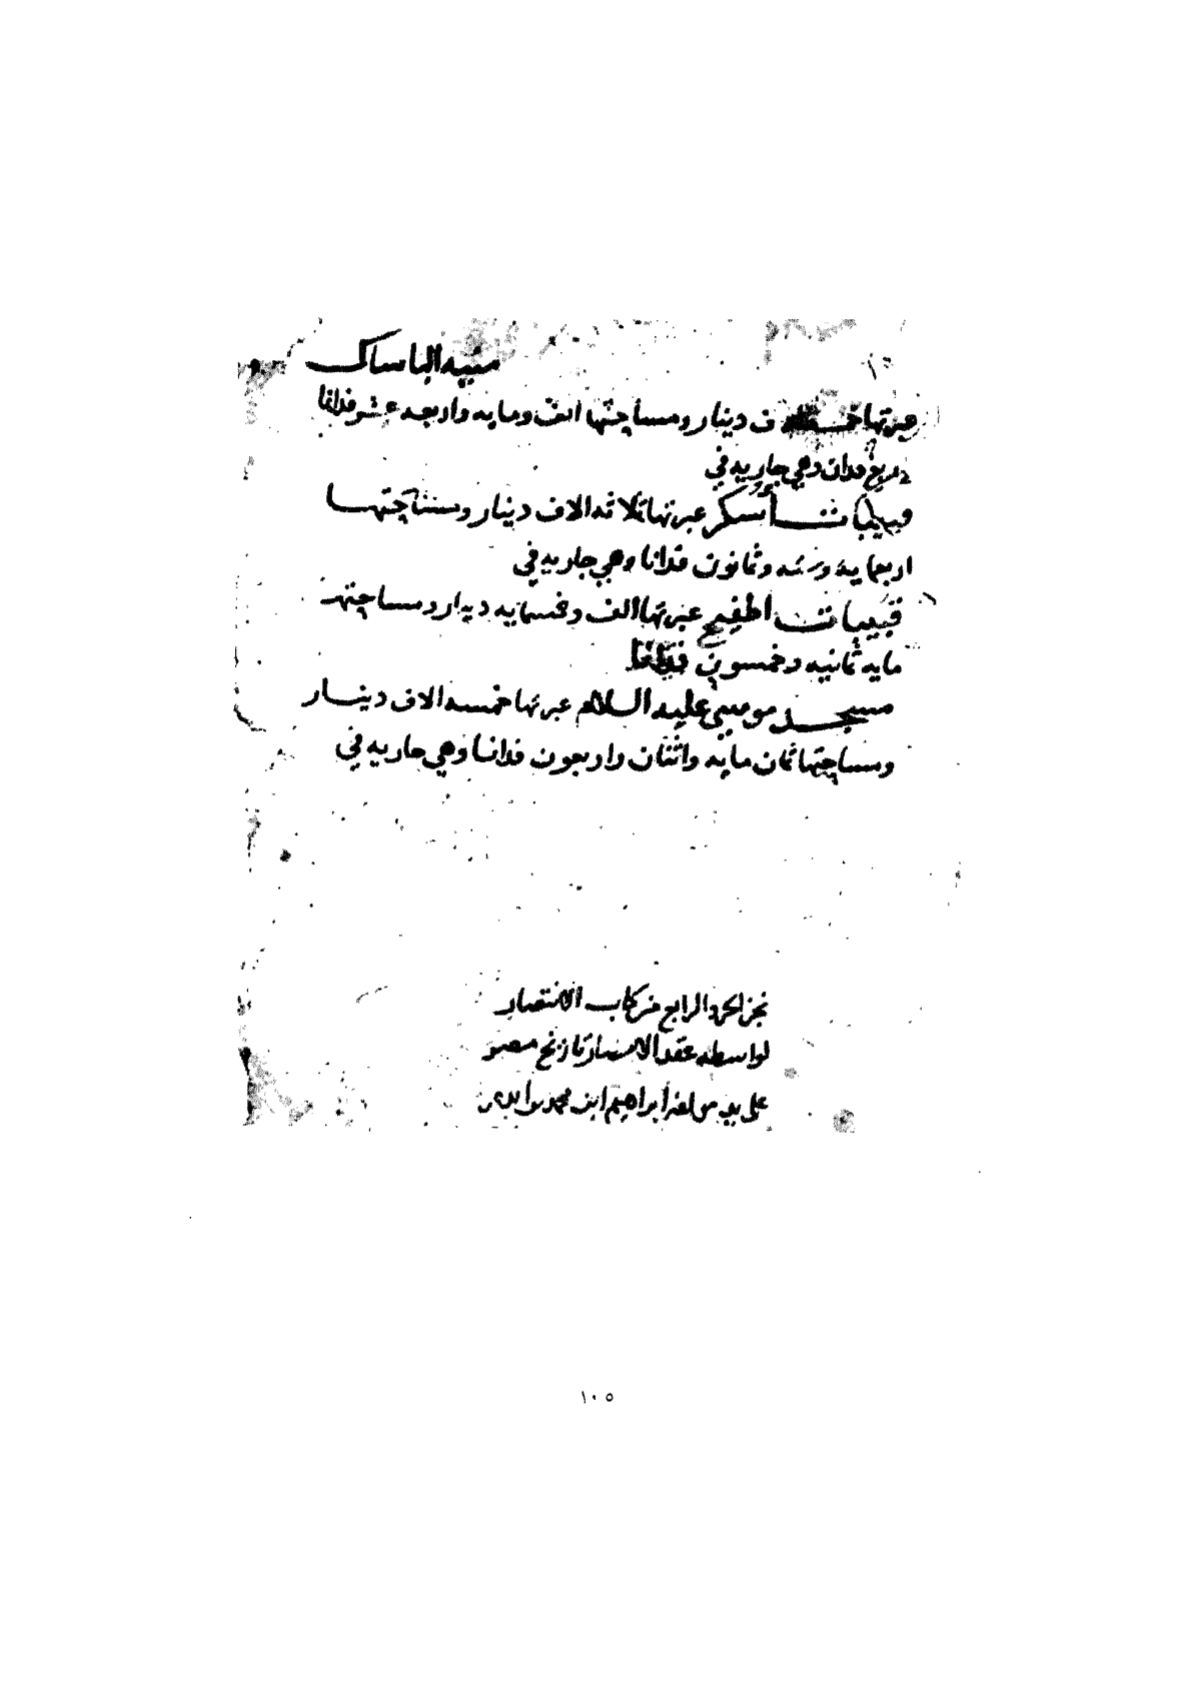 منيه الباساك
عبرتها ف دينار ومساحتها الف ومايه واربعه عشر فدانا
وربع فدان وهي جاريه في
قبيبات اسكر عبرتها ثلاثه الاف دينار ومساحتها
اربعمايه وسته وثمانون فدانا وهي جاريه في
قبيبات اطفيح عبرتها الف وخمسمايه دينار ومساحتها
مايه ثمانيه وخمسون فدانا
مسجد موسي عليه السلام عبرتها خمسه الاف دينار
ومساحتها ثمان مايه واثنان واربعون فدانا وهي جاريه في
نجز الجزو الرابع من كتاب الانتصار
لواسطه عقد الامصار تاريخ مصر
علي يد مولفه ابراهيم ابن محمد بن ايدمر
١٠٥